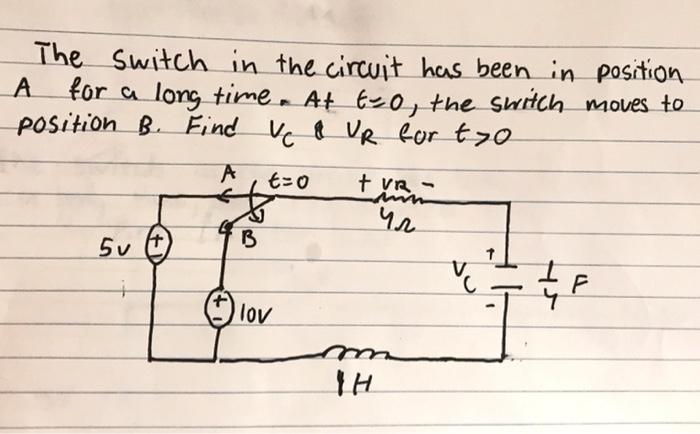 The switch in the circuit has been in position
A for a long time. At t=0, the switch moves to
position B. Find Vc & VR for t>0
A t=0 + VR -
4Ω
5v + - B
Vc + - 1/4 F
+ - 10V
1H